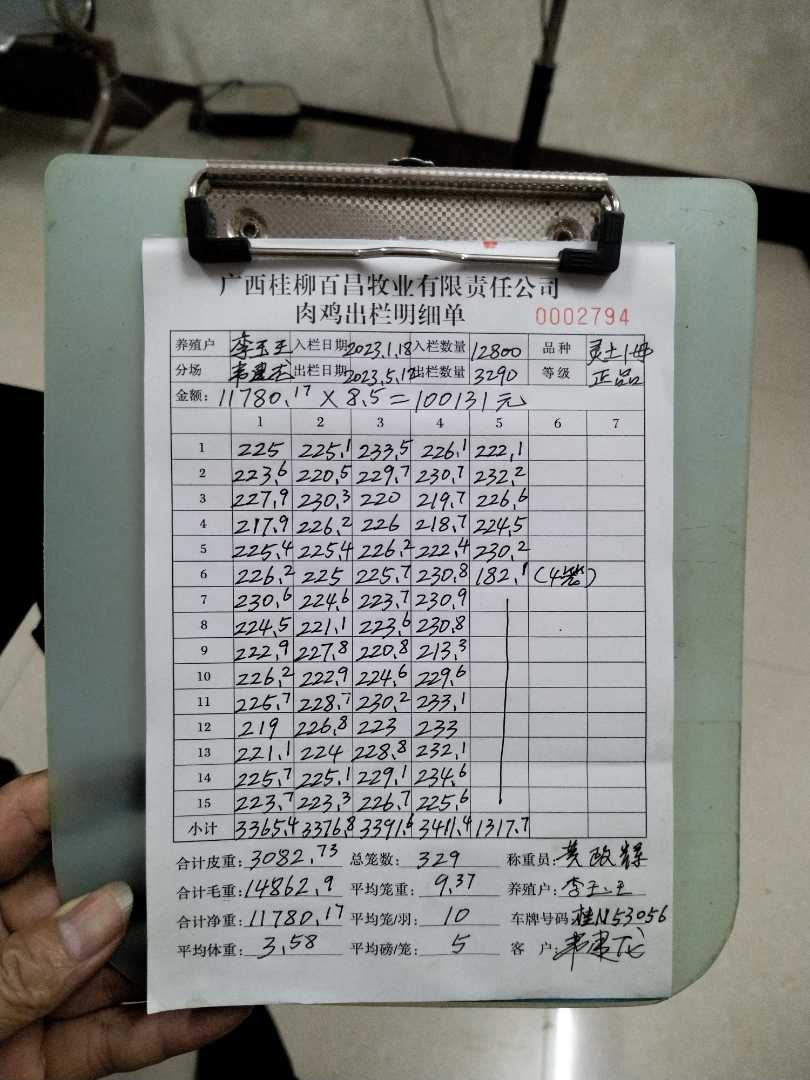 广西桂柳百昌牧业有限责任公司
肉鸡出栏明细单 0002794
养殖户 李玉玉 入栏日期 2023.1.18 入栏数量 12800 品种 灵土1母
分场 韦建龙 出栏日期 2023.5.17 出栏数量 3290 等级 正品
金额: 11780.17 × 8.5 = 100131元
1 2 3 4 5 6 7
1 225 225.1 233.5 226.1 222.1
2 223.6 220.5 229.7 230.7 232.2
3 227.9 230.3 220 219.7 226.6
4 217.9 226.2 226 218.7 224.5
5 225.4 225.4 226.2 222.4 230.2
6 226.2 225 225.7 230.8 182.1 (4笼)
7 230.6 224.6 223.7 230.9
8 224.5 221.1 223.6 230.8
9 222.9 227.8 220.8 213.3
10 226.2 222.9 224.6 229.6
11 225.7 228.7 230.2 233.1
12 219 226.8 223 233
13 221.1 224 228.8 232.1
14 225.7 225.1 229.1 234.6
15 223.7 223.3 226.7 225.6
小计 3365.4 3376.8 3391.6 3411.4 1317.7
合计皮重: 3082.73 总笼数: 329 称重员: 黄政
合计毛重: 14862.9 平均笼重: 9.37 养殖户: 李玉玉
合计净重: 11780.17 平均笼/羽: 10 车牌号码: 桂N53056
平均体重: 3.58 平均磅/笼: 5 客户: 韦建龙